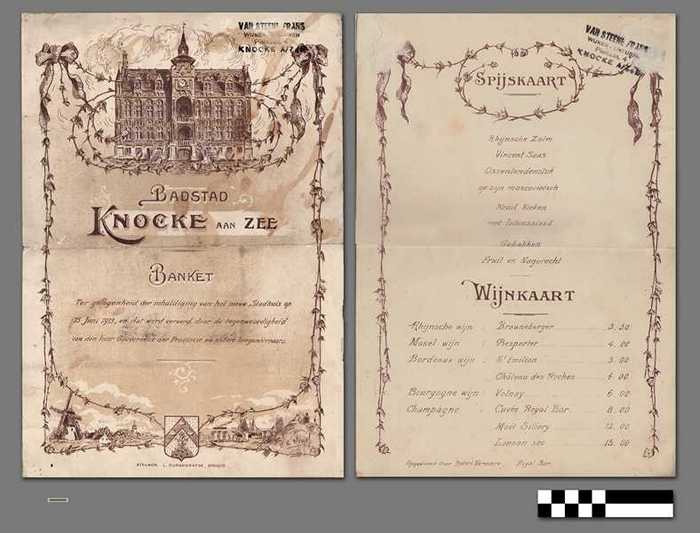 VAN STEENE FRANS
KNOCKE A/ZEE
BADSTAD
KNOCKE AAN ZEE
BANKET
Ter gelegenheid der inhuldiging van het nieuw Stadhuis op
15 Juni 1913, en dat werd vereerd door de tegenwoordigheid
van den heer Gouverneur der Provincie en andere hoogwaardigh
VAN STEENE FRANS
KNOCKE A/ZEE
SPIJSKAART
Rhijnsche Zalm
Vincent Saus
Ossenlendenstuk
op zijn moscovietsch
Mesid Kieken
met Latuwsalaad
Gebakken
Fruit en Nagerecht
WIJNKAART
Rhijnsche wijn : Brauneberger 3.50
Mosel wijn : Pesporter 4.00
Bordeaux wijn : St Emilion 3.00
Château des Roches 4.00
Bourgogne wijn : Volnay 6.00
Champagne : Cuvée Royal Bar 8.00
Moët Sillery 12.00
Lanson sec 15.00
Opgediend door Royal Bar